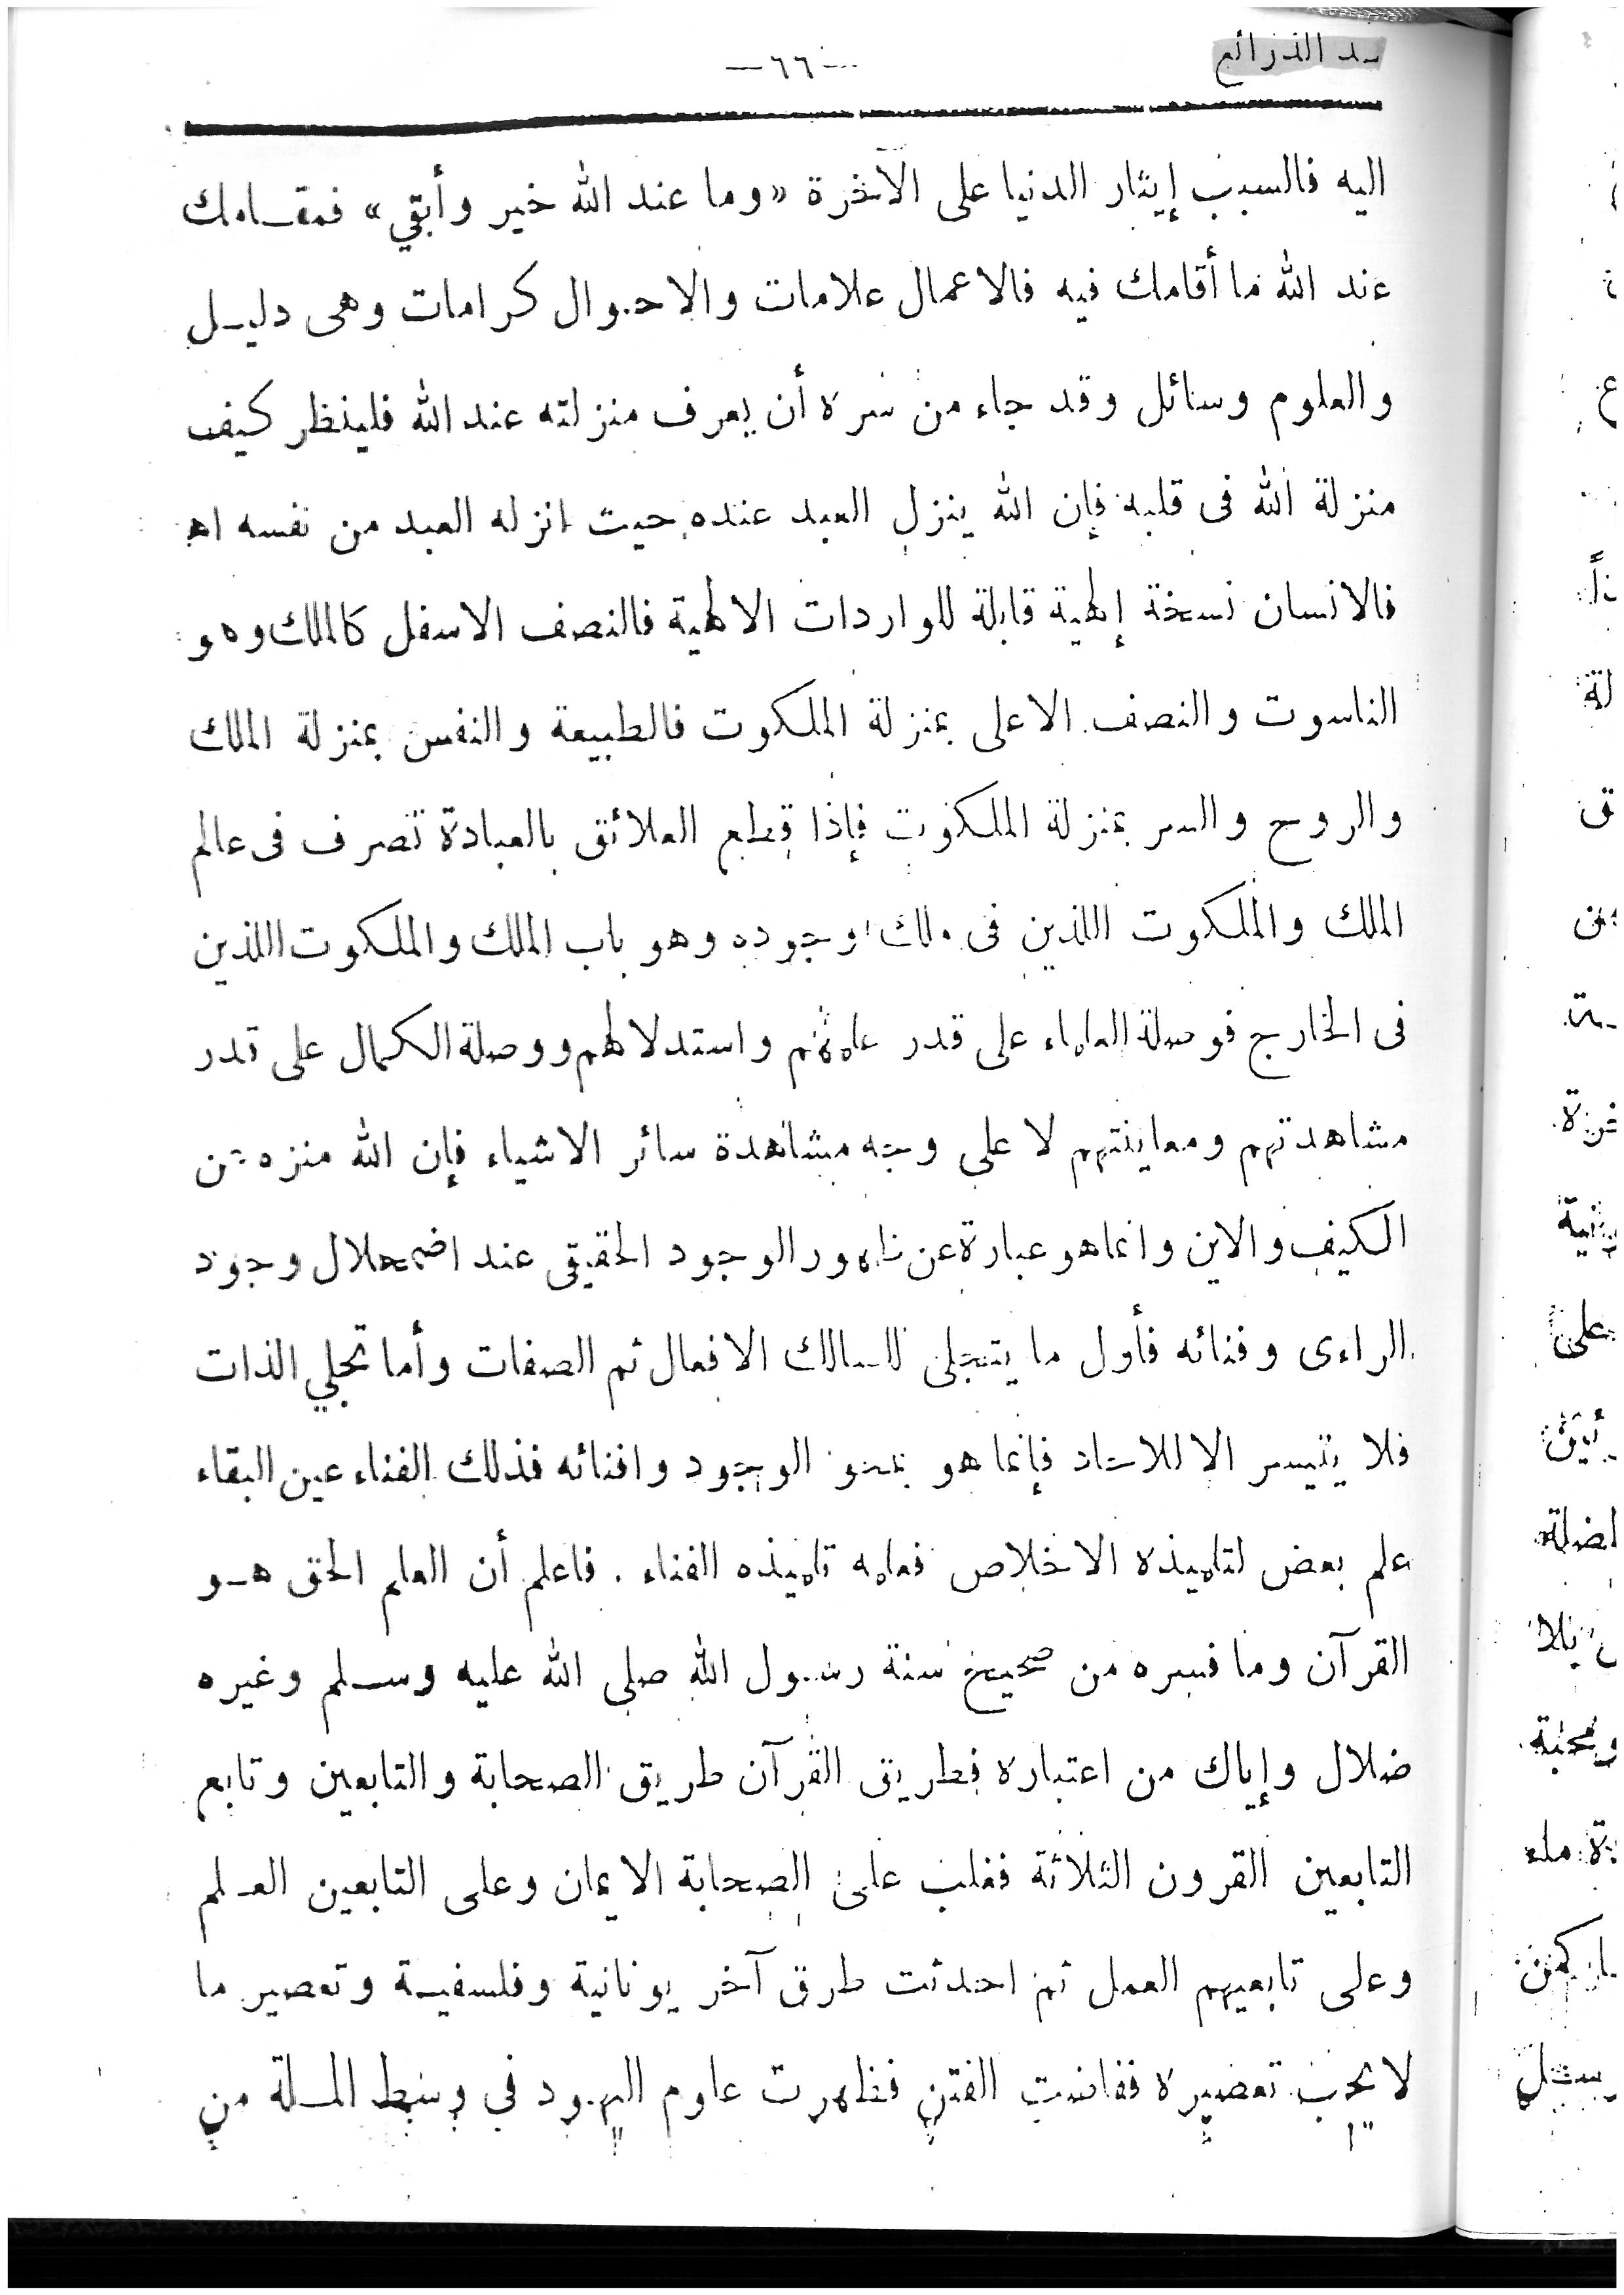 سد الذرائع
— ٦٦ —
اليه فالسبب إيثار الدنيا على الآخرة «وما عند الله خير وأبقي» فمقامك
عند الله ما أقامك فيه فالاعمال علامات والاحوال كرامات وهى دليل
والعلوم وسائل وقد جاء من سره أن يعرف منزلته عند الله فلينظر كيف
منزلة الله فى قلبه فإن الله ينزل العبد عنده حيث انزله العبد من نفسه اه
فالانسان نسخة إلهية قابلة للواردات الالهية فالنصف الاسفل كالملك وهو
الناسوت والنصف الاعلى بمنزلة الملكوت فالطبيعة والنفس بمنزلة الملك
والروح والسر بمنزلة الملكوت فإذا قطع العلائق بالعبادة تصرف فى عالم
الملك والملكوت اللذين فى ملك وجوده وهو باب الملك والملكوت اللذين
فى الخارج فوصلة العلماء على قدر علمهم واستدلالهم ووصلة الكمال على قدر
مشاهدتهم ومعاينتهم لا على وجه مشاهدة سائر الاشياء فإن الله منزه عن
الكيف والاين وانما هو عبارة عن ظهور الوجود الحقيقى عند اضمحلال وجود
الراءى وفنائه فأول ما يتجلى للسالك الافعال ثم الصفات وأما تجلي الذات
فلا يتيسر الا للاحاد فإنما هو بمحو الوجود وافنائه فذلك الفناء عين البقاء
علم بعض لتلميذه الاخلاص فعلمه تلميذه الفناء . فاعلم أن العلم الحق هو
القرآن وما فسره من صحيح سنة رسول الله صلى الله عليه وسلم وغيره
ضلال وإياك من اعتباره فطريق القرآن طريق الصحابة والتابعين وتابع
التابعين القرون الثلاثة فغلب على الصحابة الايمان وعلى التابعين العلم
وعلى تابعيهم العمل ثم احدثت طرق آخر يونانية وفلسفية وتعصير ما
لا يجب تعصيره ففاضت الفتن فظهرت علوم اليهود في وسط الملة من